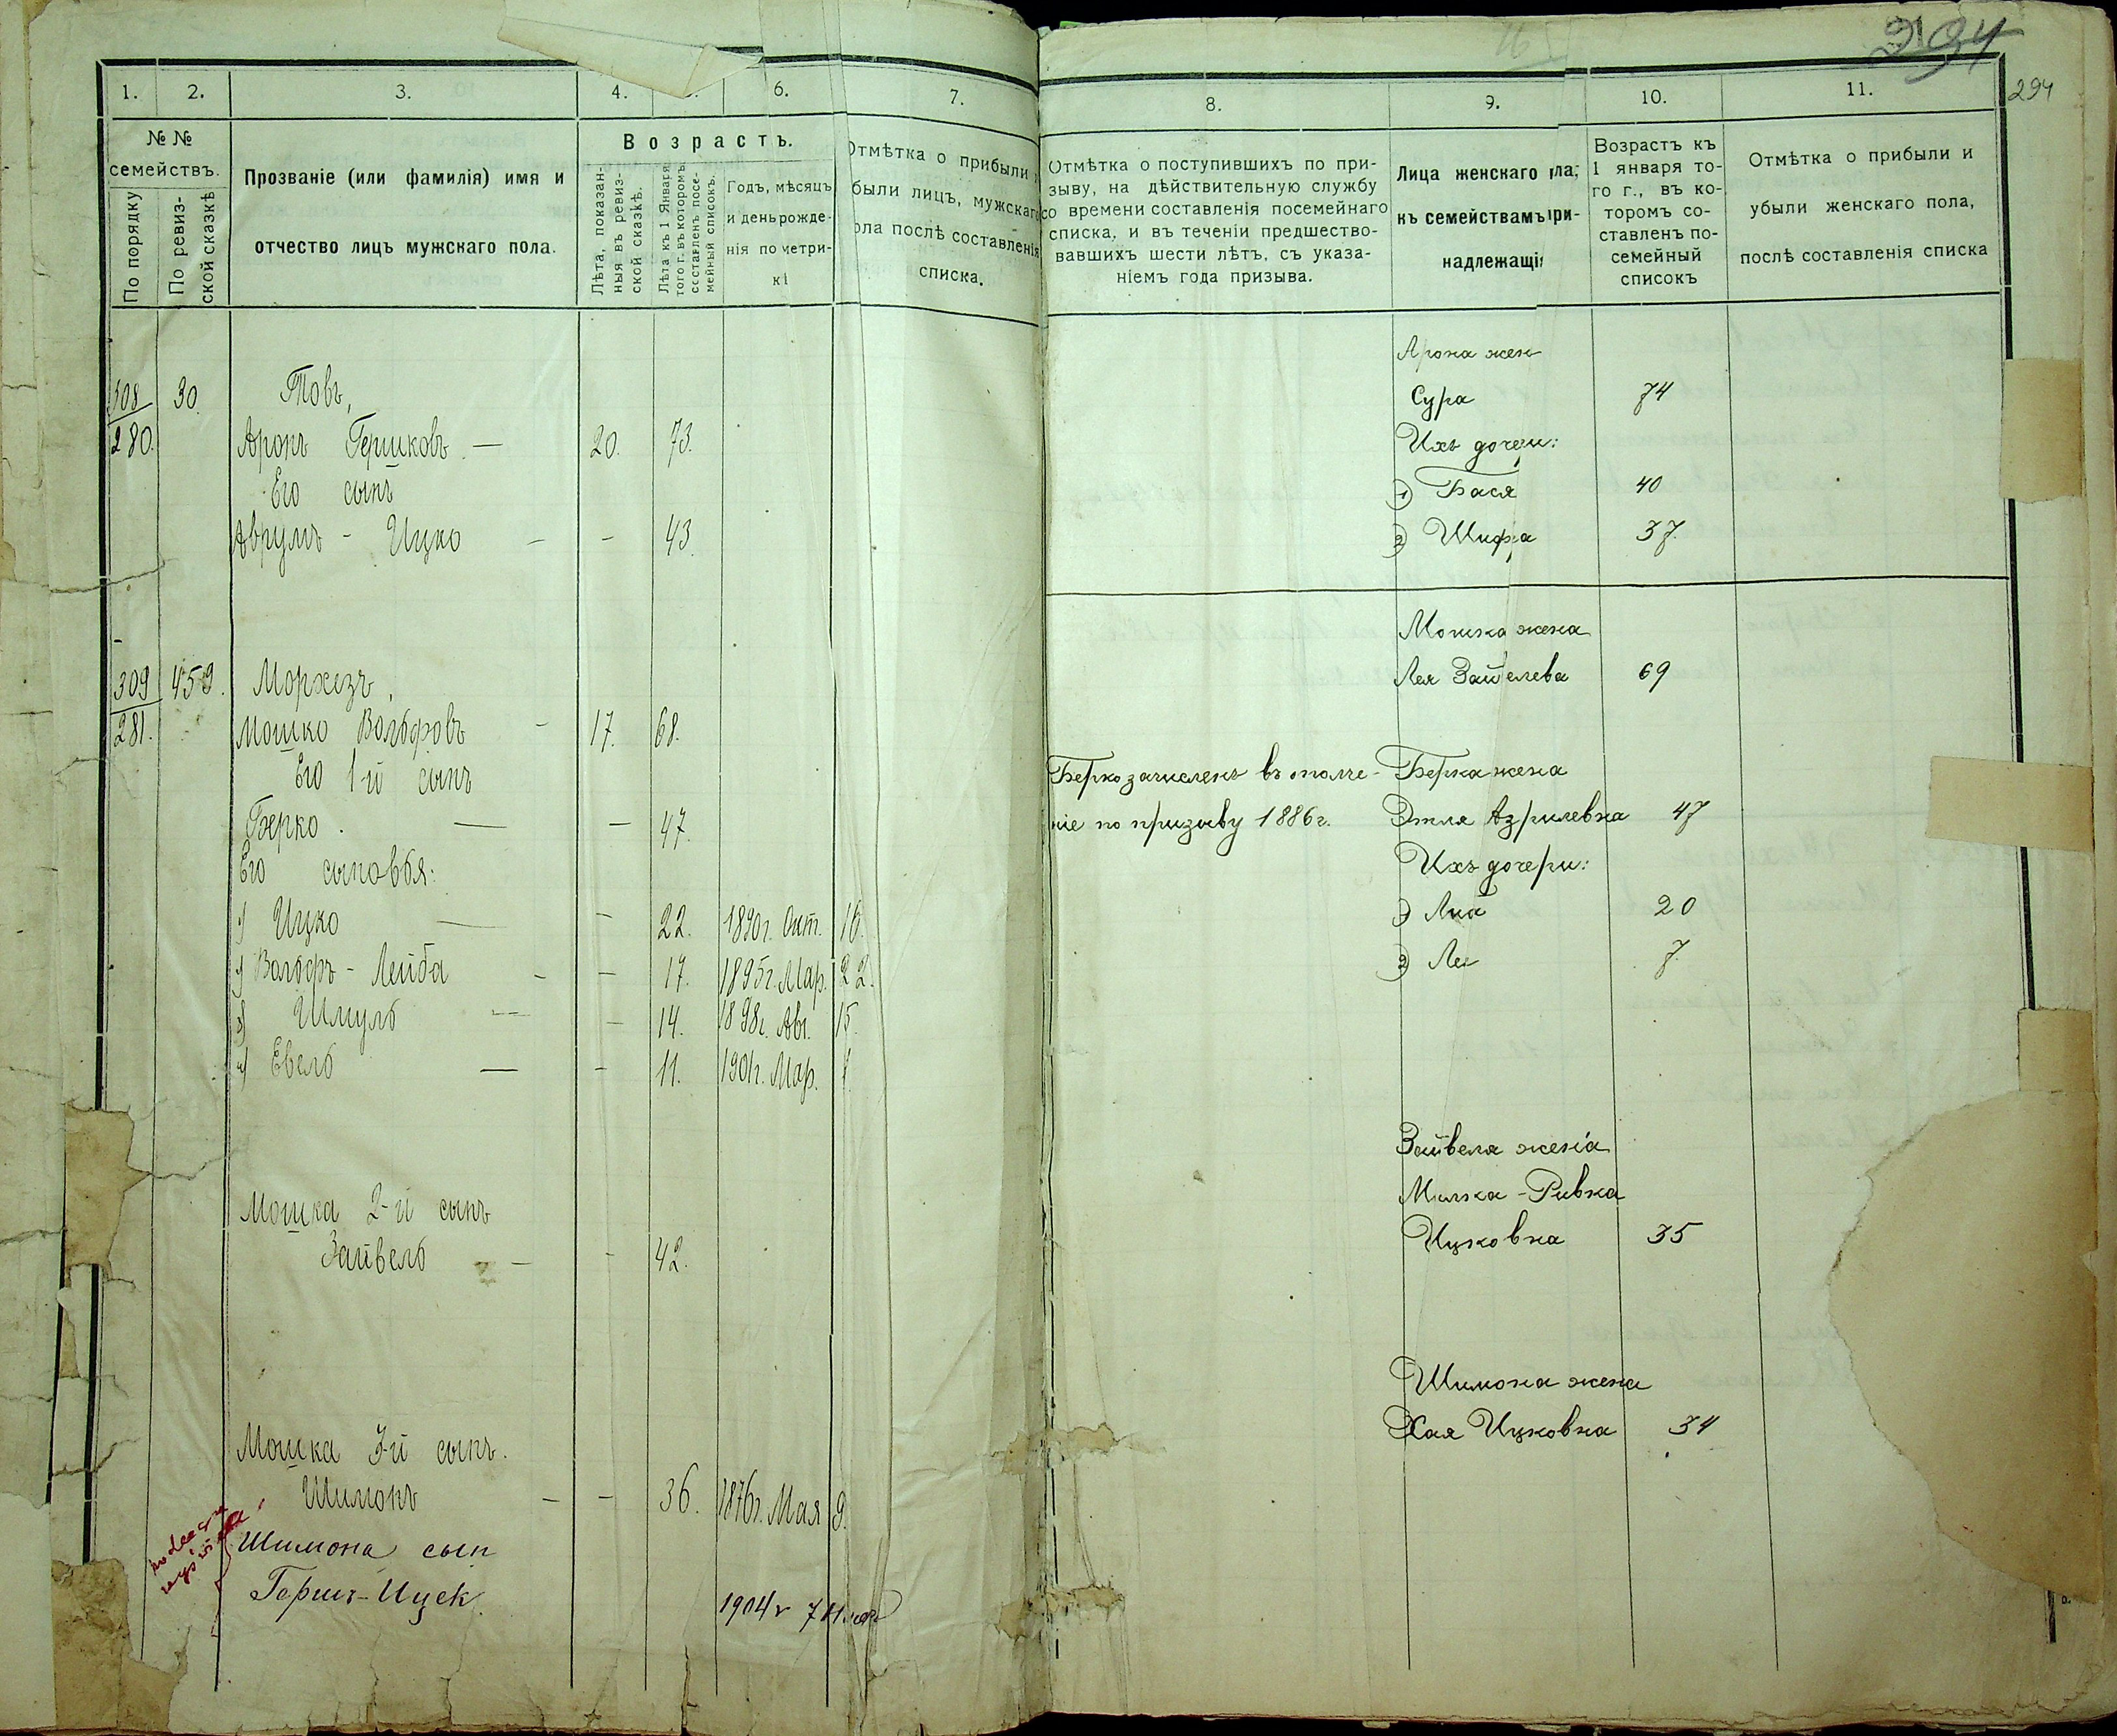 294
294
1. 2. 3. 4. 6. 7.
№ № семействъ.
По порядку
По ревизской сказкѣ
Прозваніе (или фамилія) имя и
отчество лицъ мужскаго пола.
Возрастъ.
Лѣта, показан-
ныя въ ревиз-
ской сказкѣ.
Лѣта къ 1 Января
того г. въ которомъ
составленъ посе-
мейный списокъ.
Годъ, мѣсяцъ
и день рожде-
нія по метри-
кі
Отмѣтка о прибыли
были лицъ, мужскаго
ола послѣ составленія
списка.
308 30. Товъ,
280. Аронъ Гершковъ — 20. 73.
Его сынъ
Аврумъ - Ицко — - 43.
309 459. Морхезъ,
281. Мошко Вольфовъ - 17. 68.
Его 1-й сынъ
Берко. — — 47.
Его сыновья:
1) Ицко — - 22. 1890г. Окт. 16.
Вольфъ - Лейба - - 17. 1895г. Мар. 22.
3) Шмуль — - 14. 1898г. Авг. 15.
4) Евель — - 11. 1901г. Мар. 1.
Мошка 2-й сынъ
Зайвель — - 42.
Мошка 3-й сынъ.
Шимонъ — - 36. 1876г. Мая 9.
Шимона сын
Герш-Ицек 1904г 7
8. 9. 10. 11.
Отмѣтка о поступившихъ по при-
зыву, на дѣйствительную службу
со времени составленія посемейнаго
списка, и въ теченіи предшество-
вавшихъ шести лѣтъ, съ указа-
ніемъ года призыва.
Лица женскаго
къ семействамъ при-
надлежащія
Возрастъ къ
1 января то-
го г., въ ко-
торомъ со-
ставленъ по-
семейный
списокъ
Отмѣтка о прибыли и
убыли женскаго пола,
послѣ составленія списка
Арона жен
Сура 74
Ихъ дочери:
1) Бася 40
2) Шифра 37.
Мошка жена
Лея Зайвелева 69
Берко зачисленъ въ ополче- Берка жена
ніе по призыву 1886г. Этля Азрилевна 47
Ихъ дочери:
1) 20
2) Лея 7.
Зайвеля жена
Милка - Ривка
Ицковна 35
Шимона жена
Хая Ицковна 34